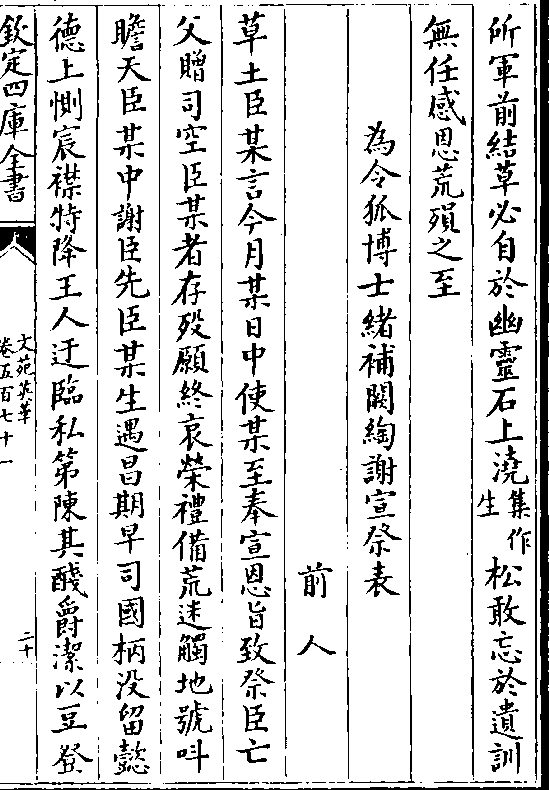 所軍前結草必自於幽靈石上澆集作生松敢忘於遺訓
無任感恩荒殞之至
為令狐博士緒補闕綯謝宣祭表
前人
草土臣某言今月某日中使某至奉宣恩旨致祭臣亡
父贈司空臣某者存殁願終哀榮禮備荒迷觸地號叫
瞻天臣某中謝臣先臣某生遇昌期早司國柄没留懿
德上惻宸襟特降王人迂臨私第陳其醆爵潔以豆登
欽定四庫全書
文苑英華
卷五百七十一
二十